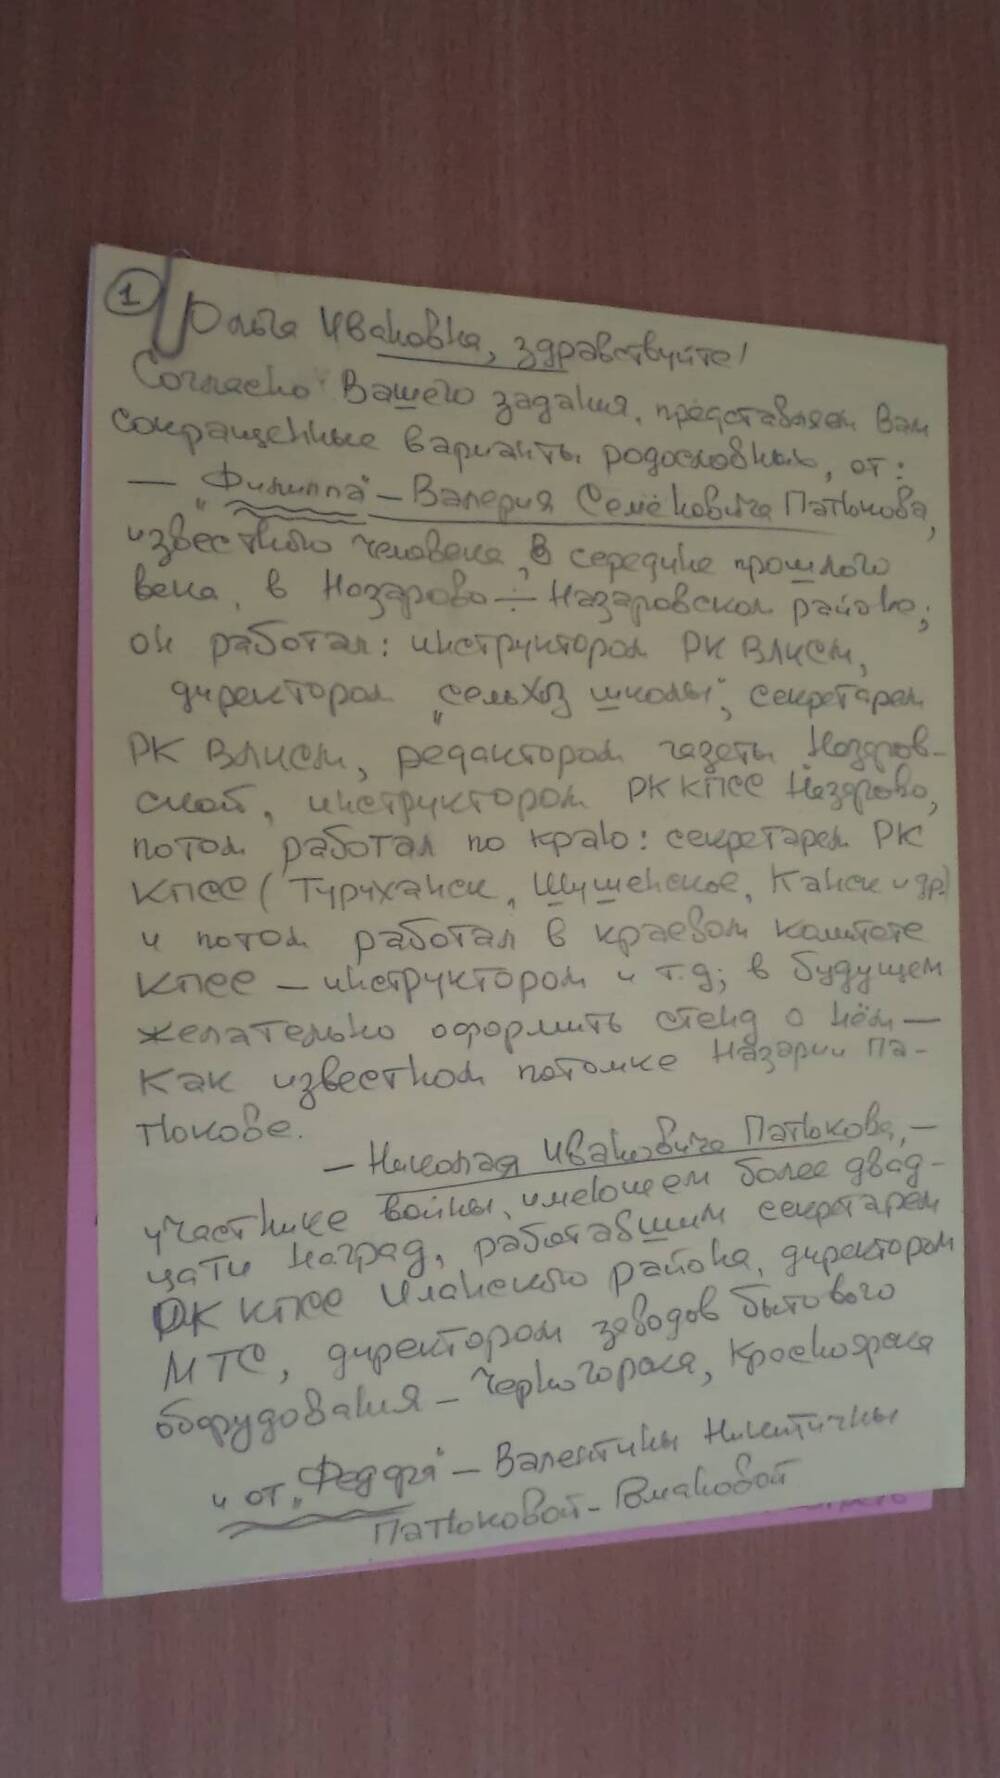 1
Ольга Ивановна, здравствуйте!
Согласно Вашего задания, представляем Вам
сокращенные варианты родословных, от:
— „Филиппа" – Валерия Семёновича Патюкова,
известного человека, в середине прошлого
века, в Назарово ÷ Назаровском районе;
он работал: инструктором РК ВЛКСМ,
директором „сельхоз школы", секретарем
РК ВЛКСМ, редактором газеты Назаров-
ской, инструктором РК КПСС Назарово,
потом работал по краю: секретарем РК
КПСС (Туруханск, Шушенское, Канск и др.)
и потом работал в краевом комитете
КПСС — инструктором и т.д; в будущем
желательно оформить стенд о нём —
Как известном потомке Назарии Па-
тюкове.
— Николая Ивановича Патюкова, —
участнике войны, имеющем более двад-
цати наград, работавшим секретарем
РК КПСС Иланского района, директором
МТС, директором заводов бытового
оборудования – Черногорска, Красноярска
и от „Феддря" – Валентины Никитичны
Патюковой-